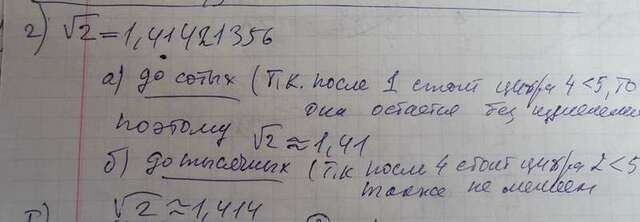 2) √2 = 1,41421356
а) до сотых (т.к. после 1 стоит цифра 4 < 5, то
она остается без изменения
поэтому √2 ≈ 1,41
б) до тысячных (т.к после 4 стоит цифра 2 < 5
также не меняем
√2 ≈ 1,414